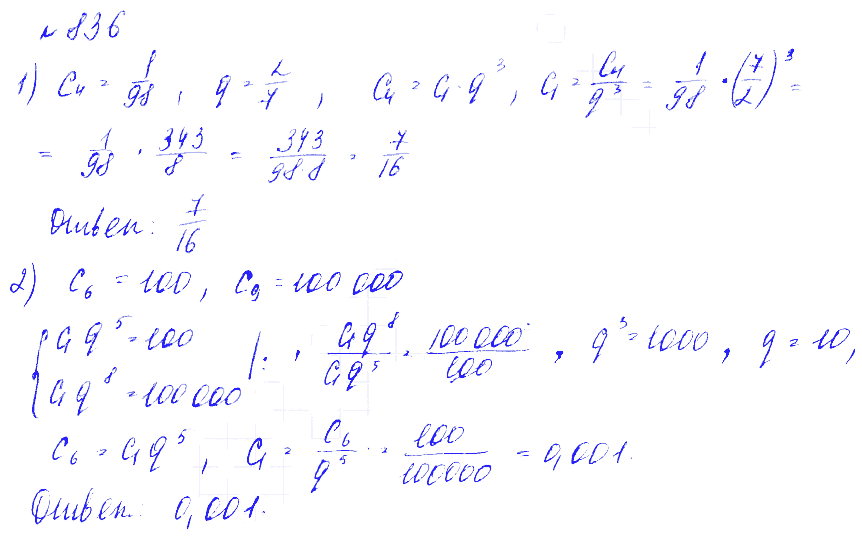 № 836
1) C₄ = 1/98, q = 2/7, C₄ = C₁·q³, C₁ = C₄/q³ = 1/98 · (7/2)³ =
= 1/98 · 343/8 = 343/(98·8) = 7/16
Ответ: 7/16
2) C₆ = 100, C₉ = 100 000
{ C₁q⁵ = 100
C₁q⁸ = 100 000 |: , C₁q⁸/C₁q⁵ = 100 000/100, q³ = 1000, q = 10,
C₆ = C₁q⁵, C₁ = C₆/q⁵ = 100/100000 = 0,001.
Ответ: 0,001.